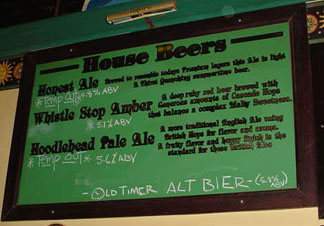 House Beers
Honest Ale Brewed to resemble todays Premium lagers this Ale is light
* Temp out * 4.8% ABV A Thirst Quenching summertime beer.
Whistle Stop Amber A deep ruby red beer brewed with
Generous amounts of Cascade Hops
that balance a complex Malty Sweetness.
* 5.1% ABV
Hoodlehead Pale Ale A more traditional English Ale using
British Hops for flavor and aroma.
* Temp out * 5.6% ABV A fruity flavor and finish is the
standard for these British Ales
- OLD TIMER ALT BIER - ( ABV)